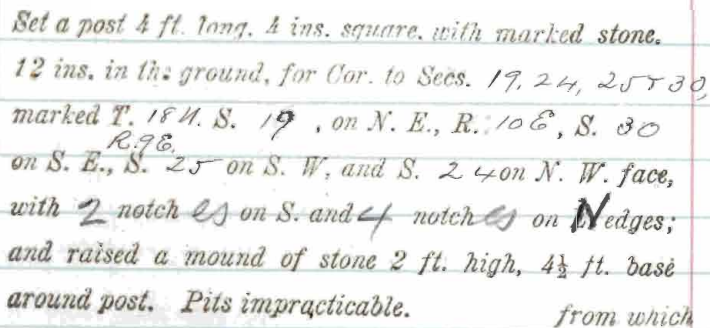 Set a post 4 ft. long. 4 ins. square. with marked stone.
12 ins. in the ground, for Cor. to Secs. 19, 24, 25 & 30,
marked T. 18 N. S. 19, on N. E., R. 10 E, S. 30
R. 9 E.
on S. E., S. 25 on S. W, and S. 24 on N. W. face,
with 2 notches on S. and 4 notches on N edges;
and raised a mound of stone 2 ft. high, 4½ ft. base
around post. Pits impracticable. from which